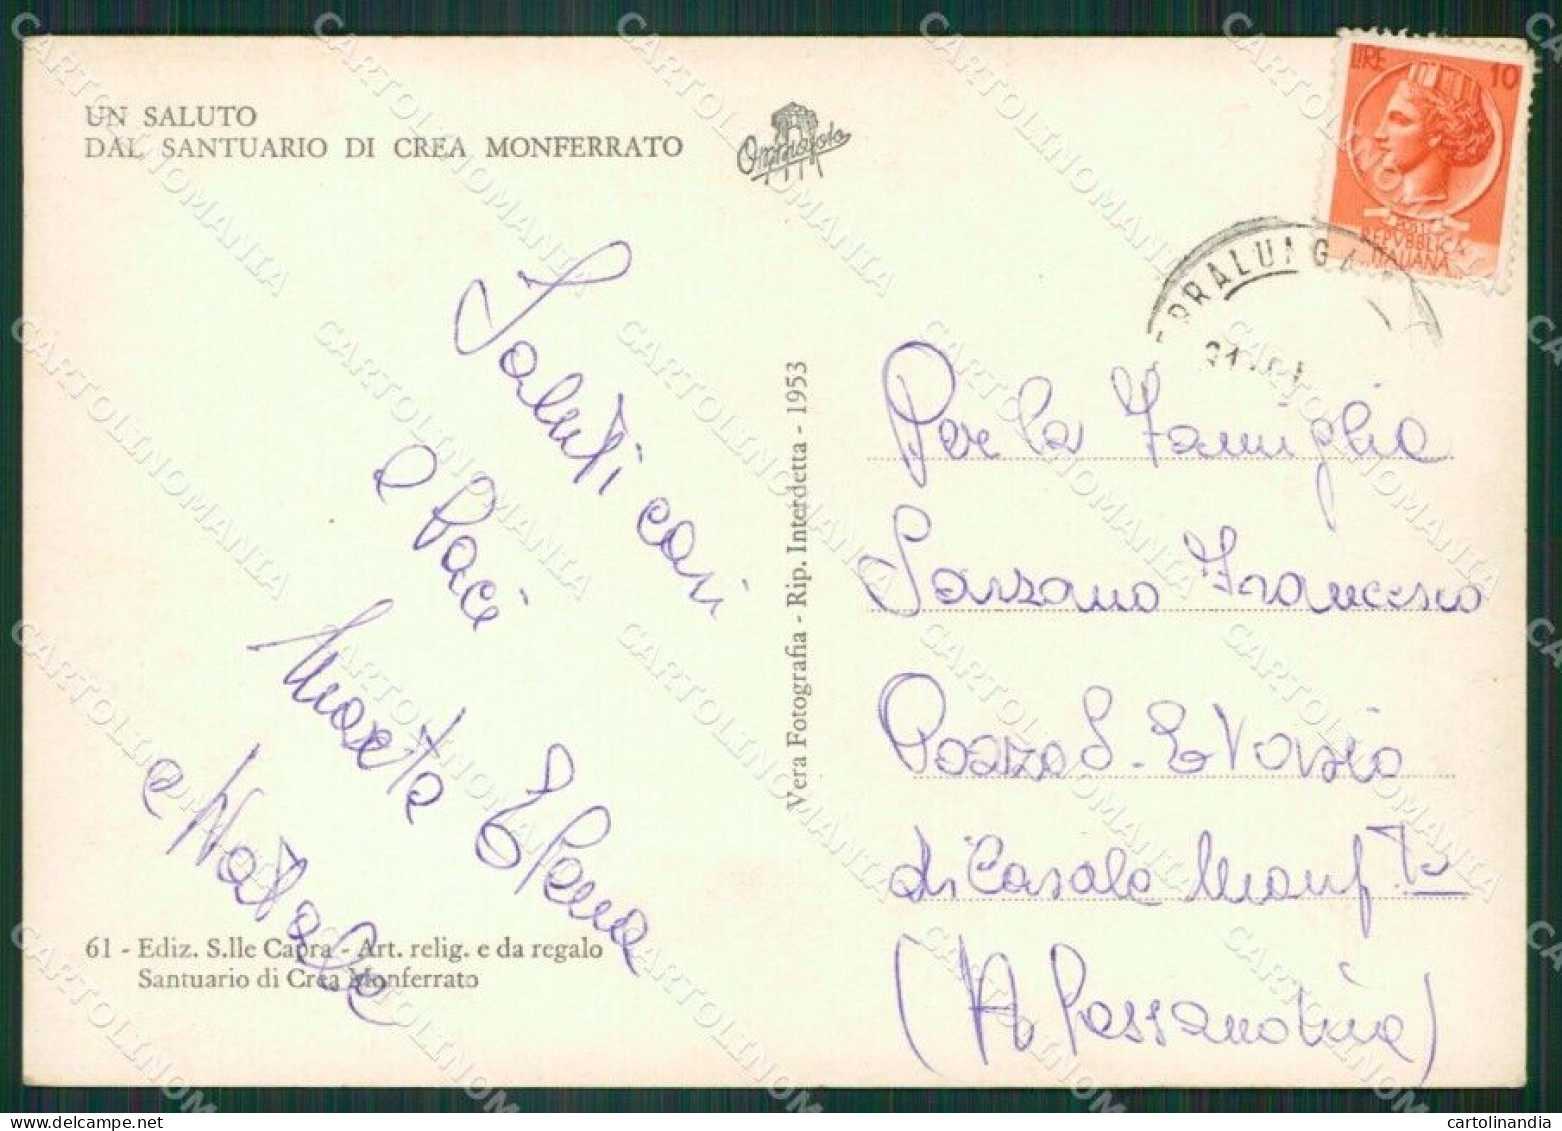 UN SALUTO
DAL SANTUARIO DI CREA MONFERRATO
Ommafoto
LIRE 10
REPVBBLICA
ITALIANA
Saluti cari
e Baci
Elena
e Natale
Vera Fotografia - Rip. Interdetta - 1953
Per la Famiglia
Sarzano Francesco
Pozzo S. Evasio
di Casale Monf.to
(Alessandria)
61 - Ediz. S.lle Capra - Art. relig. e da regalo
Santuario di Crea Monferrato
CARTOLINOMANIA
cartolinandia